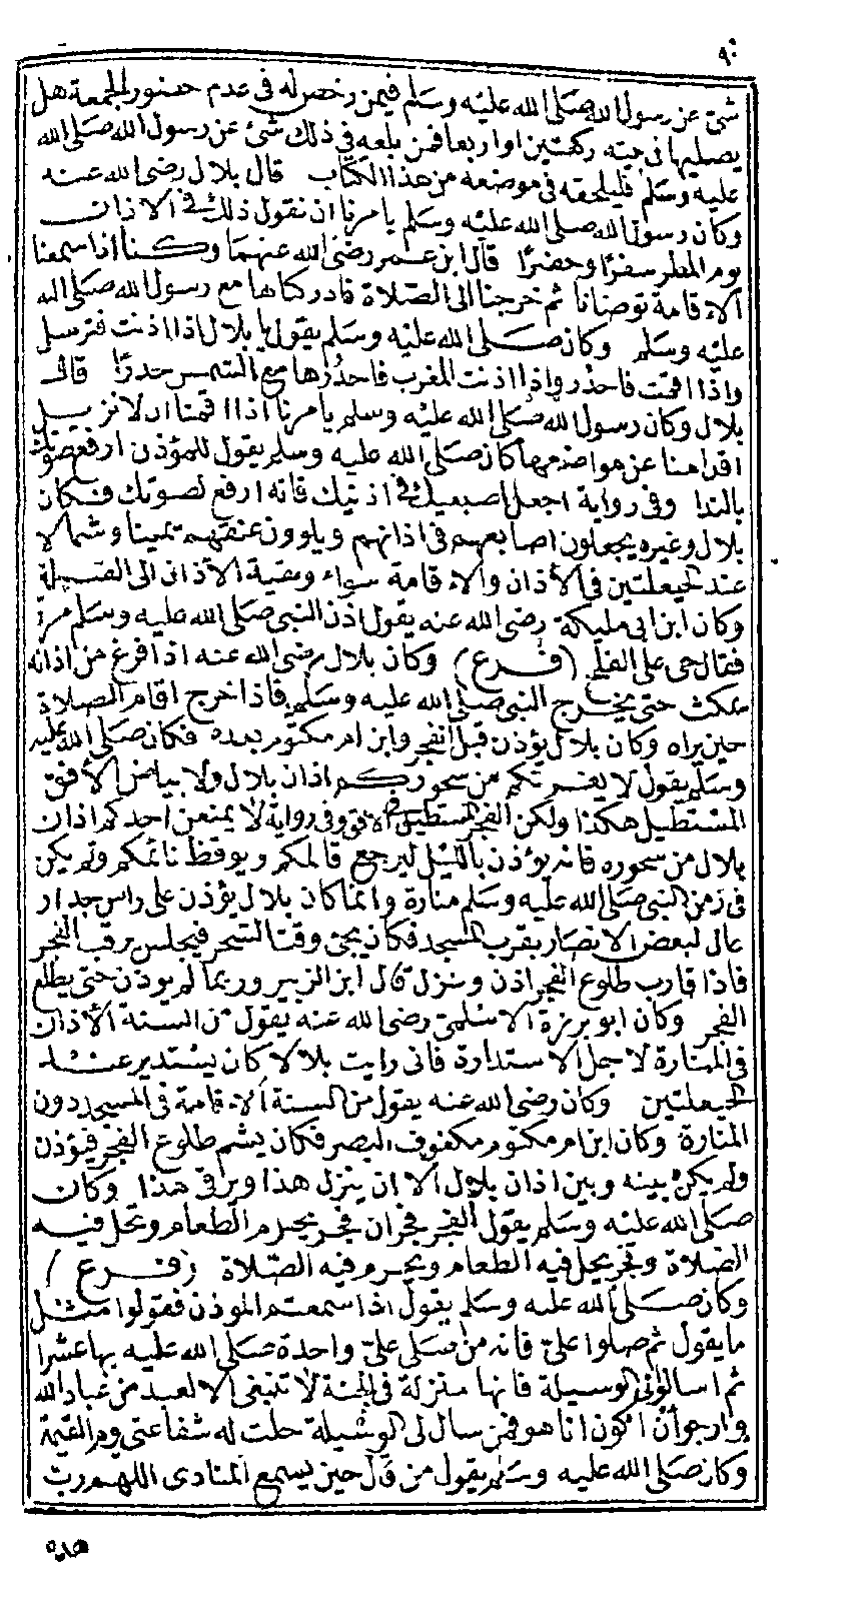 ٩٠
شئ عن رسول الله صلى الله عليه وسلم فيمن رخص له في عدم حضور الجمعة هل
يصليها في بيته ركعتين او اربعا فمن بلغه في ذلك شئ عن رسول الله صلى الله
عليه وسلم فليلحقه في موضعه من هذا الكتاب قال بلال رضي الله عنه
وكان رسول الله صلى الله عليه وسلم يامرنا ان نقول ذلك في الاذان
يوم المطر سفرًا وحضرًا قال ابن عمر رضي الله عنهما وكنا اذا سمعنا
الاقامة توضانا ثم خرجنا الى الصلاة فادركناها مع رسول الله صلى الله
عليه وسلم وكان صلى الله عليه وسلم يقول يا بلال اذا اذنت فترسل
واذا اقمت فاحذر واذا اذنت المغرب فاحذرها مع الشمس حدرًا قال
بلال وكان رسول الله صلى الله عليه وسلم يامرنا اذا اقمنا ان لا نزيل
اقدامنا عن مواضعها كان صلى الله عليه وسلم يقول للمؤذن ارفع صوتك
بالندا وفي رواية اجعل اصبعيك في اذنيك فانه ارفع لصوتك فكان
بلال وغيره يجعلون اصابعهم في اذانهم ويلوون عنقهم يمينا وشمالا
عند الحيعلتين في الأذان والاقامة سواء وبقية الآذان الى القبلة
وكان ابن ابي مليكة رضي الله عنه يقول اذن النبي صلى الله عليه وسلم مرة
فقال حي على الفلاح (فرع) وكان بلال رضي الله عنه اذا فرغ من اذانه
يمكث حتى يخرج النبي صلى الله عليه وسلم فاذا خرج اقام الصلاة
حين يراه وكان بلال يؤذن قبل الفجر وابن ام مكتوم بعده فكان صلى الله عليه
وسلم يقول لا يغرنكم من سحوركم اذان بلال ولا بياض الأفق
المستطيل هكذا ولكن الفجر المستطير في الافق وفي رواية لا يمنعن احدكم اذان
بلال من سحوره فانه يؤذن بالليل ليرجع قائمكم ويوقظ نائمكم ولم يكن
في زمن النبي صلى الله عليه وسلم منارة وانما كان بلال يؤذن على راس جدار
عال لبعض الانصار بقرب المسجد فكان يجئ وقت السحر فيجلس يرقب الفجر
فاذا قارب طلوع الفجر اذن ونزل قال ابن الزبير وربما لم يوذن حتى يطلع
الفجر وكان ابو برزة الاسلمي رضي الله عنه يقول من السنة الأذان
في المنارة لاجل الاستدارة فاني رايت بلالا كان يستدير عند
الحيعلتين وكان رضي الله عنه يقول من السنة الاقامة في المسجد دون
المنارة وكان ابن ام مكتوم مكفوف البصر فكان يشم طلوع الفجر فيؤذن
ولم يكن بينه وبين اذان بلال الا ان ينزل هذا ويرقى هذا وكان
صلى الله عليه وسلم يقول الفجر فجران فجر يحرم الطعام وتحل فيه
الصلاة وفجر يحل فيه الطعام ويحرم فيه الصلاة (فرع)
وكان صلى الله عليه وسلم يقول اذا سمعتم الموذن فقولوا مثل
ما يقول ثم صلوا علي فانه من صلى علي واحدة صلى الله عليه بها عشرا
ثم اسالوا لي الوسيلة فانها منزلة في الجنة لا تنبغي الا لعبد من عباد الله
وارجو أن اكون انا هو فمن سال لي الوسيلة حلت له شفاعتي يوم القيمة
وكان صلى الله عليه وسلم يقول من قال حين يسمع المنادى اللهم رب
هذه